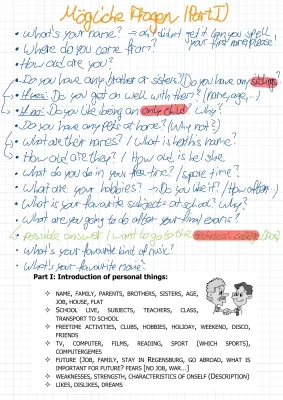 Mögliche Fragen (Part I)
• What's your name? → oh, I didn't get it can you spell your first name please!
• Where do you come from?
• How old are you?
• Do you have any brother or sisters? (Do you have any siblings?
• If yes: Do you get on well with them? (name, age, ...)
• If no: Do you like being an only child? Why?
• Do you have any pets at home? (Why not?)
• What are their names? / What is her/his name?
• How old are they? / How old is he/she
• What do you do in your free time? / spare time?
• What are your hobbies? → Do you like it? / How often
• What is your favourite subjects at school? Why?
• What are you going to do after your final exams?
possible answer: I want to go to the technical college
• What's your favourite kind of music?
• What's your favourite movie?
Part I: Introduction of personal things:
❖ NAME, FAMILY, PARENTS, BROTHERS, SISTERS, AGE,
JOB, HOUSE, FLAT
❖ SCHOOL LIVE, SUBJECTS, TEACHERS, CLASS,
TRANSPORT TO SCHOOL
❖ FREETIME ACTIVITIES, CLUBS, HOBBIES, HOLIDAY, WEEKEND, DISCO,
FRIENDS
❖ TV, COMPUTER, FILMS, READING, SPORT (WHICH SPORTS),
COMPUTERGEMES
❖ FUTURE (JOB, FAMILY, STAY IN REGENSBURG, GO ABROAD, WHAT IS
IMPORTANT FOR FUTURE? FEARS [NO JOB, WAR...]
❖ WEAKNESSES, STRENGTH, CHARACTERISTICS OF ONSELF (DESCRIPTION)
❖ LIKES, DISLIKES, DREAMS